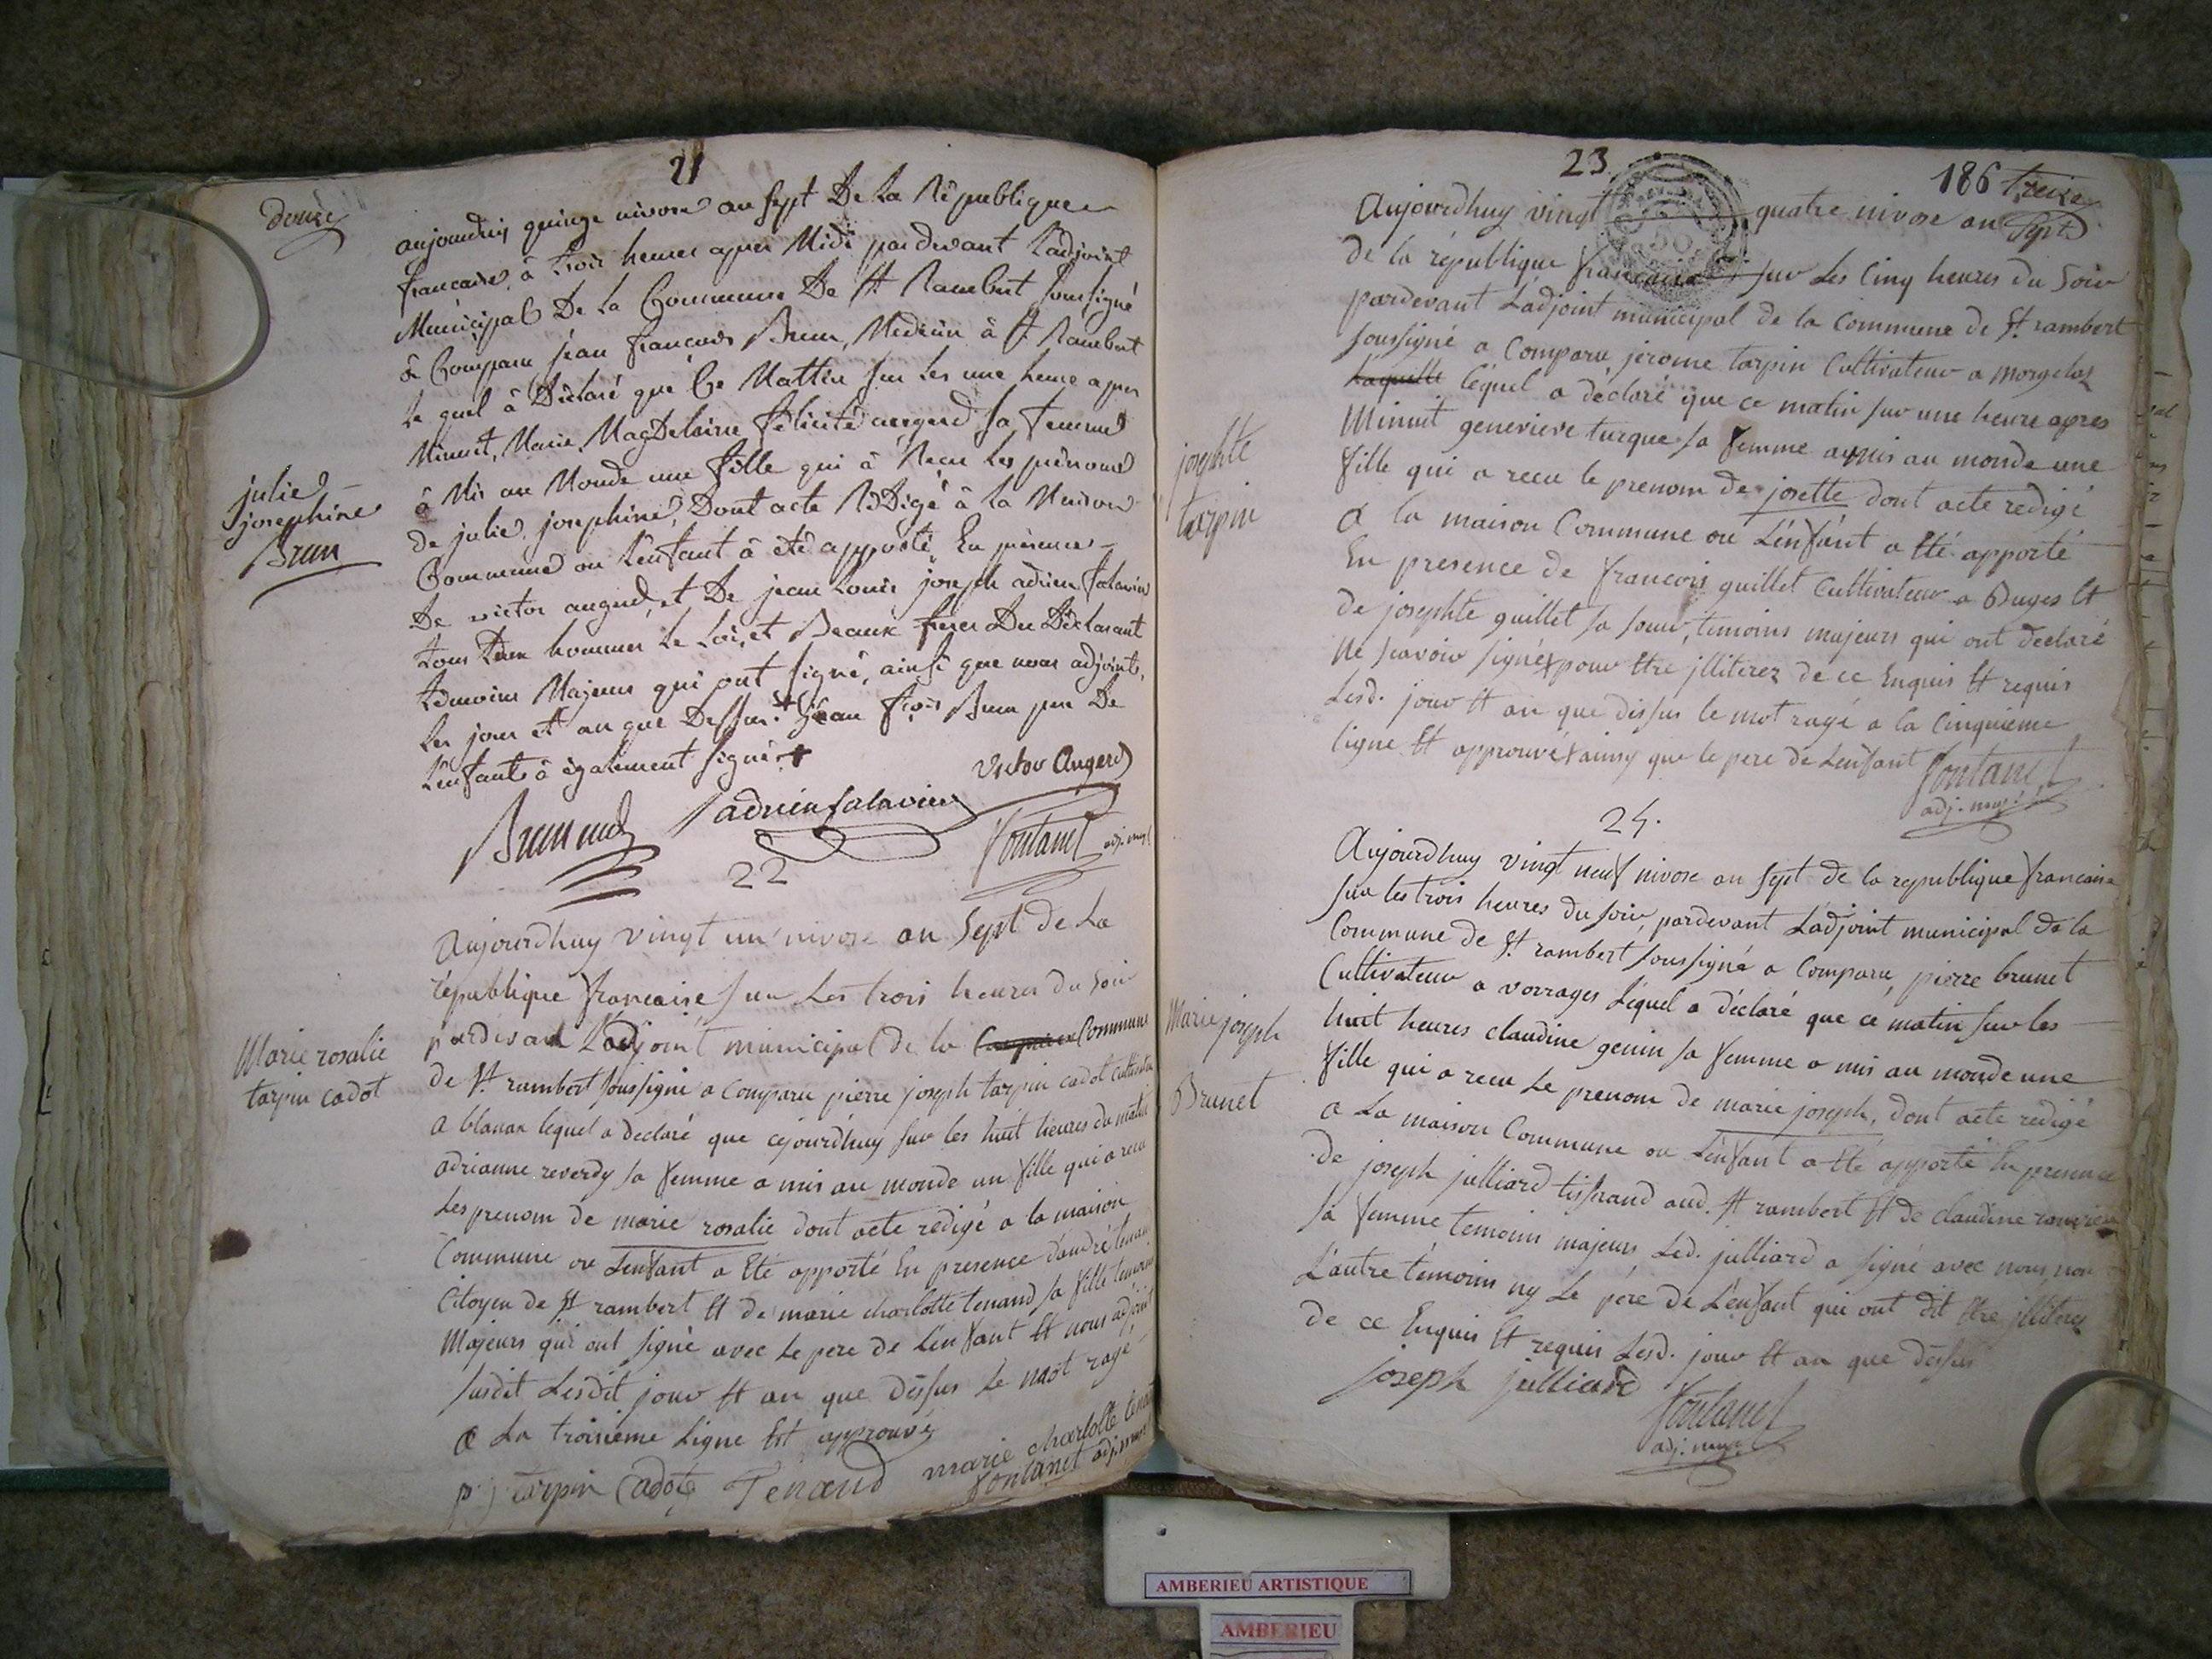 21
douze
aujourdhuy quinze nivose an sept De La République
francaise, à trois heures apres Midi pardevant L'adjoint
Municipal De la Commune De St. Rambert soussigné
à Comparu jean francois Brun, Medecin à St Rambert
le quel à Déclaré que Ce Mattin sur les une heure apres
Minuit, Marie Magdeleine félicité augerd sa femme
à Mis au Monde une fille qui à Recu les prénoms
de julie, josephine, Dont acte Rédigé à la Maison
Commune ou L'enfant à été apporté, En présence
De victor augerd, et De jean Louis joseph adrien salavin
tous Deux hommes de Loi, et Beaux freres Du Déclarant
témoins Majeurs qui ont signé, ainsi que nous adjoint,
les jour et an que Dessus. + jean fçois Brun pere De
L'enfant à également signé +
julie
josephine
Brun
victor Augerd
Brun
adrien salavin
fontanel adj. mpl
22
Aujourdhuy vingt un nivose an Sept de La
république francaise sur Les trois heures du soir
pardevant L'adjoint municipal de la Commune
de St. rambert soussigné a Comparu pierre joseph tarpin cadot cultivateur
a blanax lequel a declaré que cejourdhuy sur les huit heures du matin
adrianne reverdy sa femme a mis au monde un fille qui a recu
Les prenom de marie rosalie dont acte rédigé a la maison
Commune ou L'enfant a Eté apporté En presence d'andré tenand
Citoyen de St rambert Et de marie charlotte tenand sa fille temoins
Majeurs qui ont signé avec Le pere de L'enfant Et nous adjoint
susdit Lesdit jour Et an que dessus Le mot rayé
a La troisieme Ligne Est approuvé
Marie rosalie
tarpin cadot
p j tarpin Cadot Tenand marie charlotte tenand
fontanel adj. mun
23
186 treize
Aujourdhuy vingt quatre nivose an Sept
de la république francaise sur Les Cinq heures du Soir
pardevant L'adjoint municipal de la Commune de St. rambert
soussigné a Comparu jerome tarpin Cultivateur a morgelas
laquelle léquel a déclaré que ce matin sur une heure apres
Minuit genevieve turque sa femme a mis au monde une
fille qui a recu le prenom de josette dont acte redigé
a la maison Commune ou L'enfant a Eté apporté
En presence de francois guillet Cultivateur a Buges Et
de josephte guillet sa soeur, temoins majeurs qui ont declaré
Ne scavoir signé + pour Etre jlliterez de ce Enquis Et requis
Lesd. jour Et an que dissus le mot rayé a la Cinquieme
ligne Et approuvé + ainsy que le pere de L'enfant
josephte
tarpin
fontanel
adj. mup.
24.
Aujourdhuy vingt neuf nivose an sept de la republique francaise
sur les trois heures du soir, pardevant L'adjoint municipal de la
Commune de St. rambert soussigné a Comparu, pierre brunet
Cultivateur a vorrages Léquel a déclaré que cé matin sur les
huit heures claudine genin sa femme a mis au monde une
fille qui a recu Le prenom de marie joseph, dont acte redigé
a La maison Commune ou L'enfant a Eté apporté En presence
de joseph julliard tisserand aud. St rambert Et de claudine
sa femme temoins majeurs Led. julliard a signé avec nous non
L'autre témoins ny Le pére de L'enfant qui ont dit Etre jlliterez
de ce Enquis Et requis Lesd. jour Et an que dessus
Marie joseph
Brunet
joseph julliard
fontanel
adj. mup.
AMBERIEU ARTISTIQUE
AMBERIEU